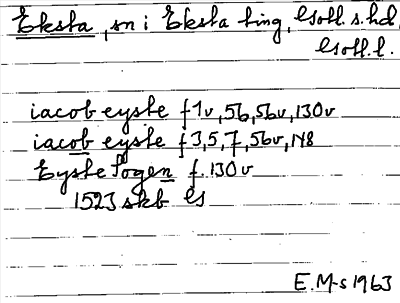 Eksta, sn i Eksta ting, Gotl. s. hd,
Gotl. l.
iacob eyste f 1v, 56, 56v, 130v
iacob eyste f 3, 5, 7, 56v, 148
Eyste sogen f. 130v
1523 skb G
E. M-s 1963